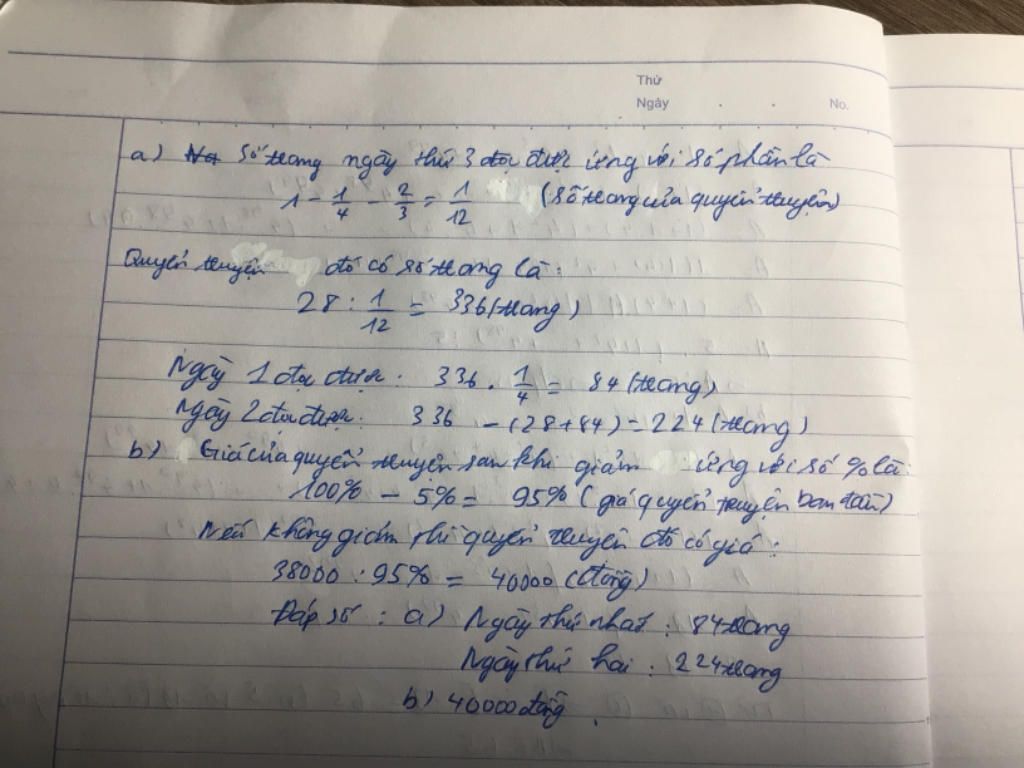 Thứ
Ngày . . No.
a) Số trang ngày thứ 3 đọc được ứng với số phần là
1 - 1/4 - 2/3 = 1/12 (số trang của quyển truyện)
Quyển truyện đó có số trang là:
28 : 1/12 = 336 (trang)
Ngày 1 đọc được: 336 . 1/4 = 84 (trang)
Ngày 2 đọc được: 336 - (28+84) = 224 (trang)
b) Giá của quyển truyện sau khi giảm ứng với số % là:
100% - 5% = 95% (giá quyển truyện ban đầu)
Nếu không giảm thì quyển truyện đó có giá:
38000 : 95% = 40000 (đồng)
Đáp số : a) Ngày thứ nhất : 84 trang
Ngày thứ hai : 224 trang
b) 40000 đồng .